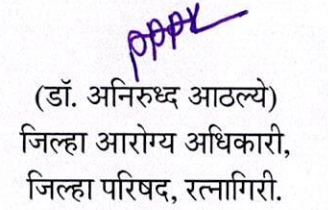 (डॉ. अनिरुध्द आठल्ये)
जिल्हा आरोग्य अधिकारी,
जिल्हा परिषद, रत्नागिरी.